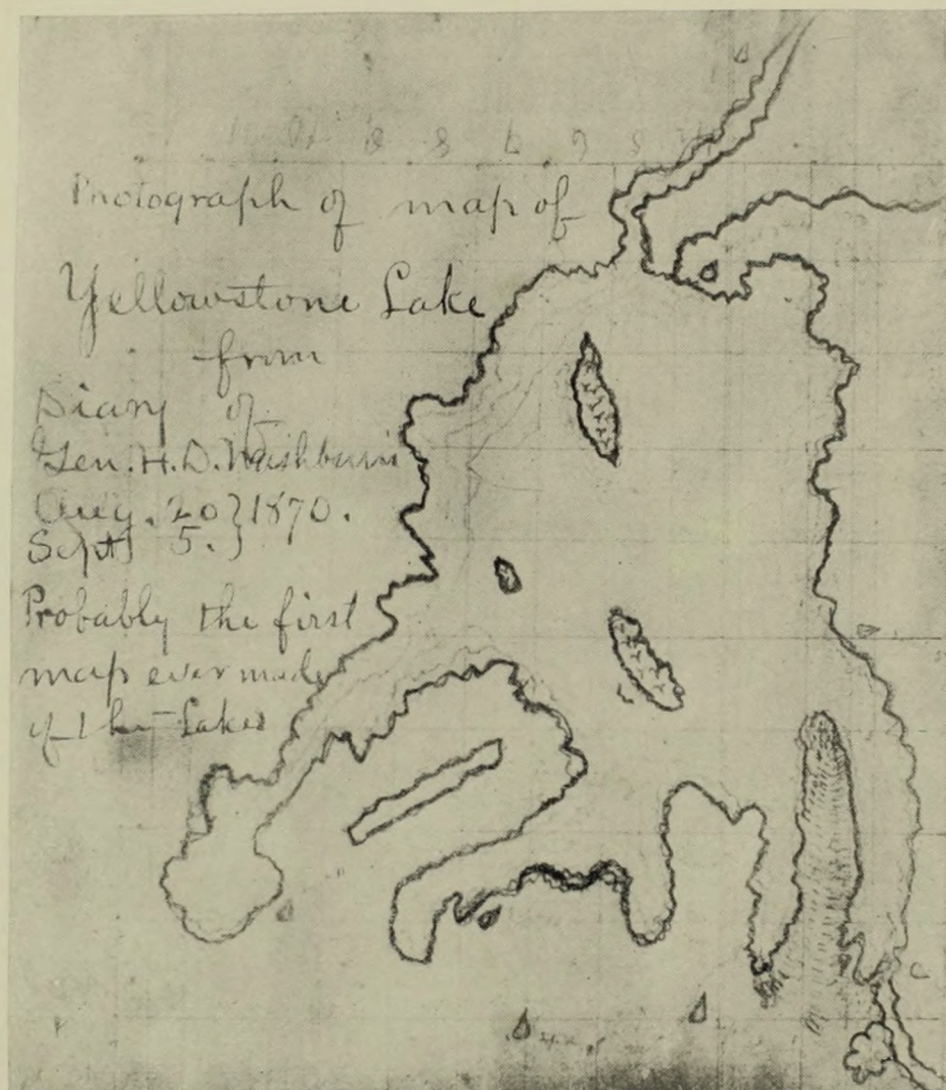 Photograph of map of
Yellowstone Lake
from
Diary of
Gen. H. D. Washburn
Aug. 20 } 1870.
Sept 5. }
Probably the first
map ever made
of the Lake